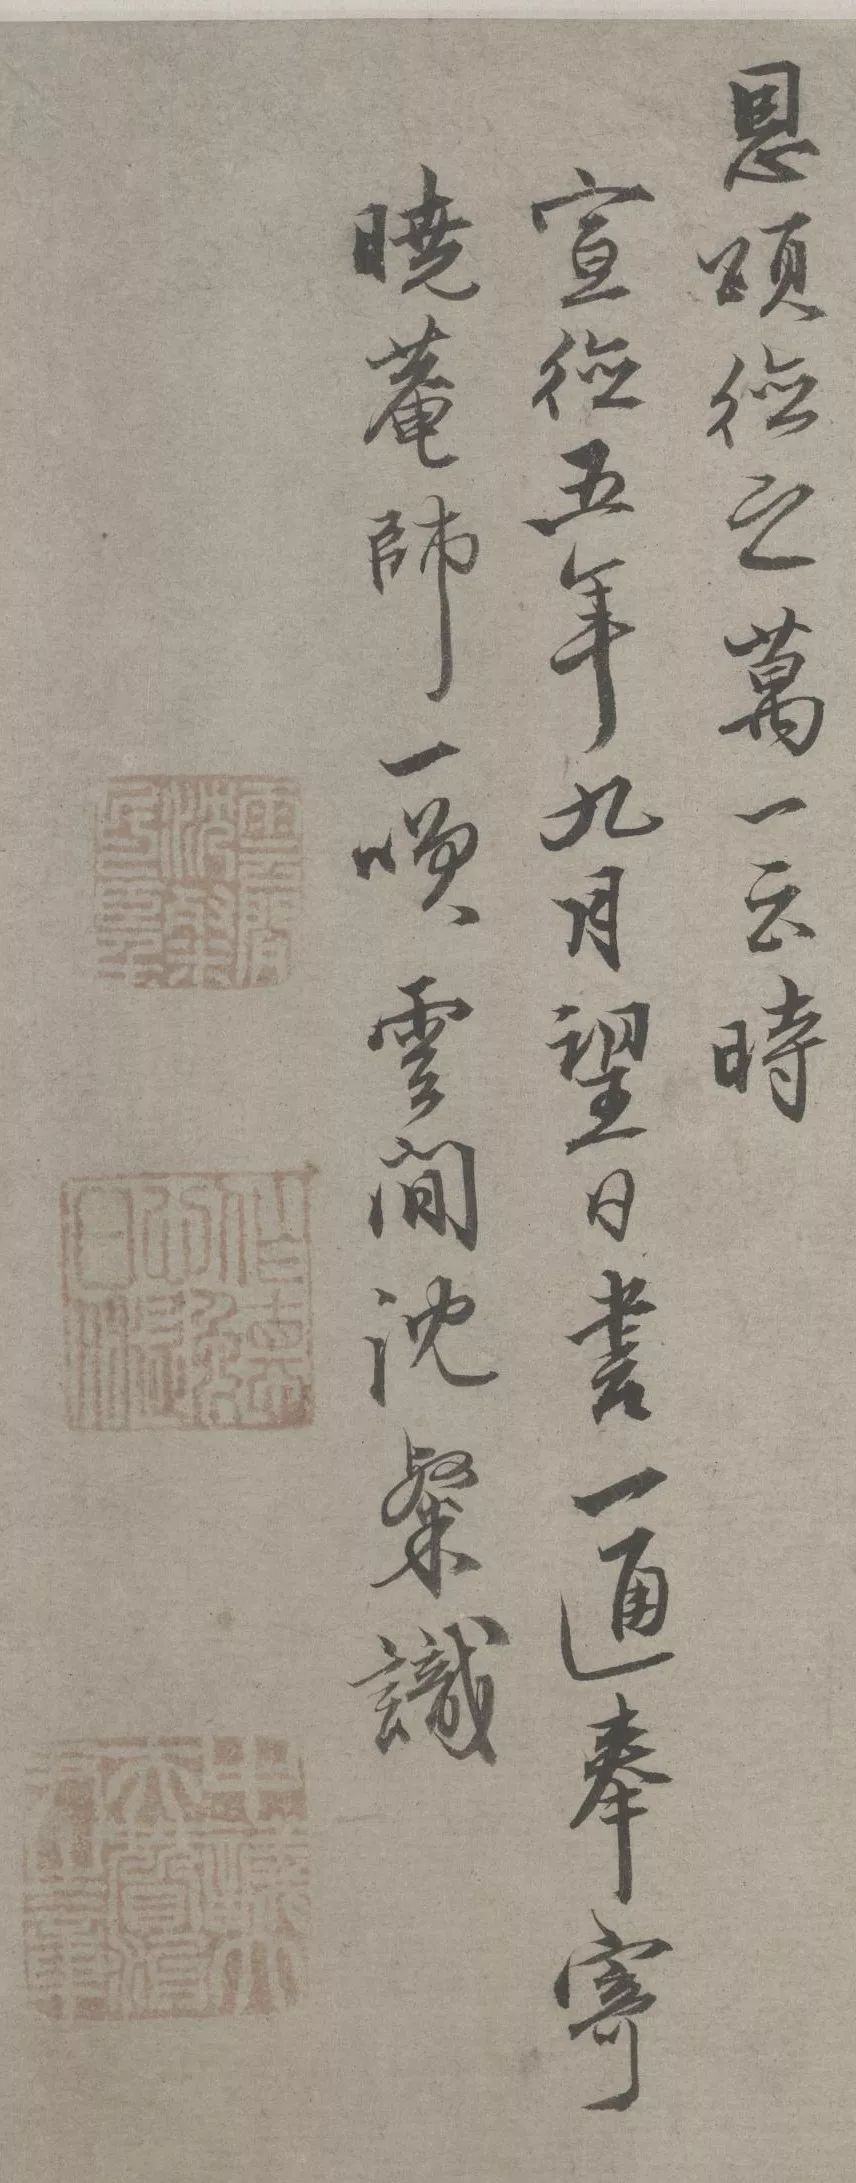 恩頌德之萬一云時
宣德五年九月望日書一通奉寄
曉菴師一噗雲間沈粲識